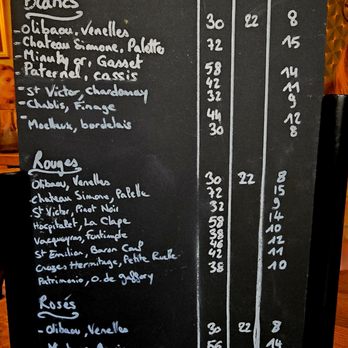 Blancs
- Olibaou, Venelles 30 22 8
- Chateau Simone, Palette 72 15
- Minuty or, Gasset 58 14
- Paternel, cassis 42 11
- St Victor, chardonnay 32 9
- Chablis, Finage 44 12
- Moelleux, bordelais 30 8
Rouges
Olibaou, Venelles 30 22 8
Chateau Simone, Palette 72 15
St Victor, Pinot Noir 32 9
Hospitalet, La Clape 58 14
Vacqueyras, 38 10
St Emilion, Baron 46 12
Crozes Hermitage, Petite Ruelle 42 11
Patrimonio, O. de gaffory 38 10
Rosés
- Olibaou, Venelles 30 22 8
56 14